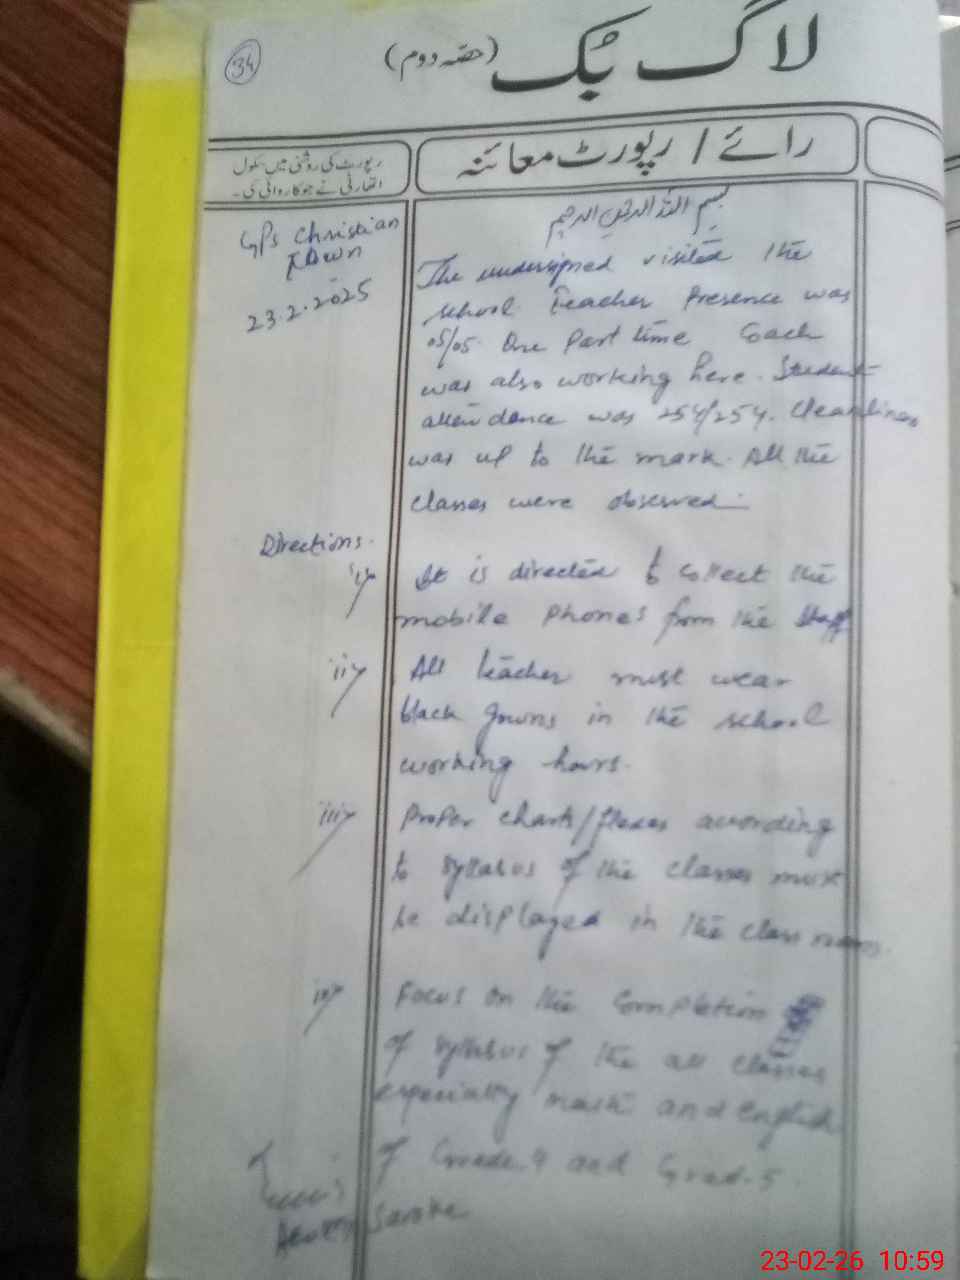 34
لاگ بک (حصّہ دوم)
رپورٹ کی روشنی میں سکول
اتھارٹی نے جو کاروائی کی۔
رائے / رپورٹ معائنہ
بسم اللہ الرحمن الرحیم
GPS Christian
Town
23.2.2025
The undersigned visited the
school. Teacher Presence was
05/05. One Part time Coach
was also working here. Student
attendance was 254/254. Cleanliness
was up to the mark. All the
classes were observed.
Directions.
i> It is directed to collect the
mobile phones from the staff
ii> All teacher must wear
black gowns in the school
working hours.
iii> Proper charts/flexes according
to syllabus of the classes must
be displayed in the class rooms.
iv> Focus on the Completion
of syllabus of the all classes
especially math and English
of Grade.4 and Grad.5.
23-02-26 10:59